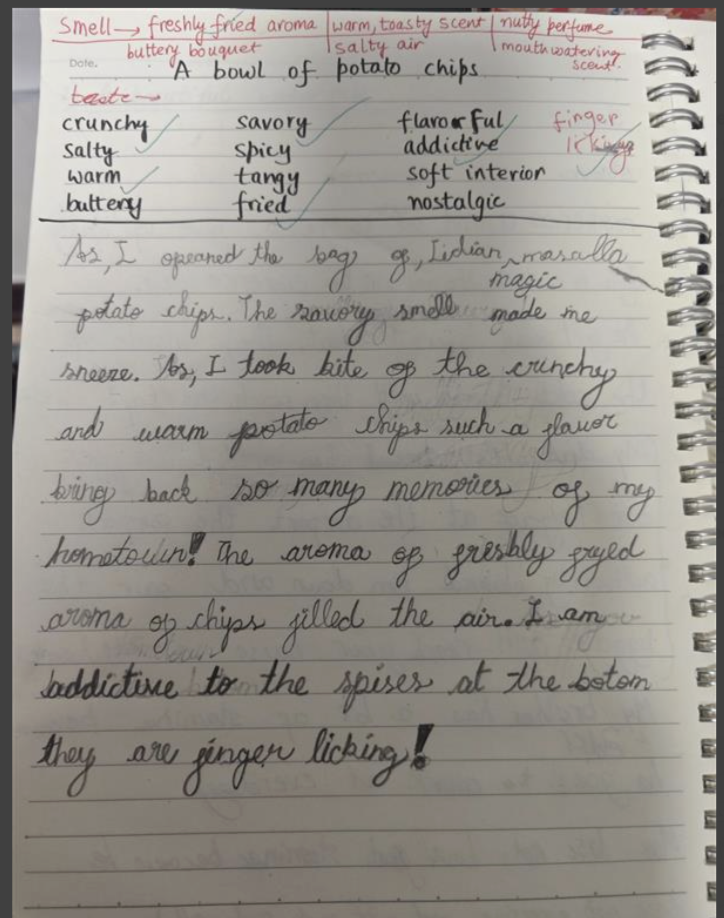 Smell → freshly fried aroma | warm, toasty scent | nutty perfume
buttery bouquet | salty air | mouthwatering scent.
Date.
A bowl of potato chips
taste →
crunchy savory flavorful finger
salty spicy addictive licking
warm tangy soft interior
buttery fried nostalgic
As, I opeaned the bag of, Iidian masalla
magic
potato chips. The savory smell made me
sneeze. As, I took bite of the crunchy
and warm potato chips such a flavor
bring back so many memories of my
hometown! The aroma of freshly fryed
aroma of chips filled the air. I am
addictive to the spises at the botom
they are finger licking!